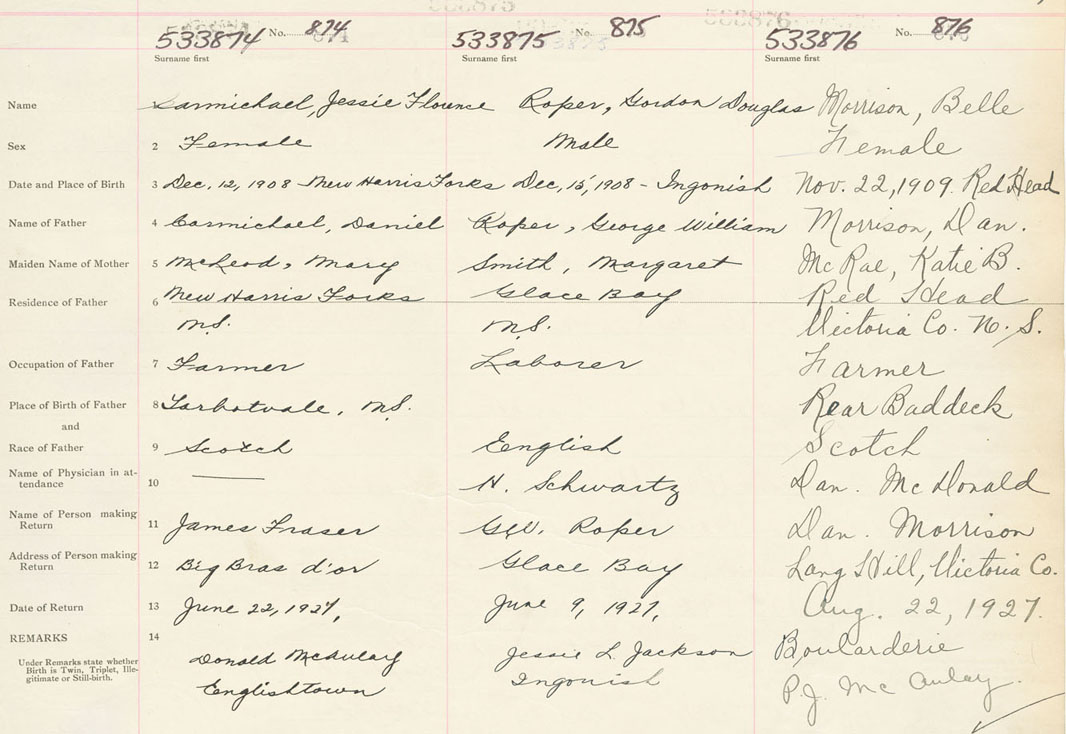 533874 No. 874 533875 No. 875 533876 No. 876
Surname first Surname first Surname first
Name Carmichael, Jessie Florence Roper, Gordon Douglas Morrison, Belle
Sex 2 Female Male Female
Date and Place of Birth 3 Dec. 12, 1908 - New Harris Forks Dec, 15, 1908 - Ingonish Nov. 22, 1909. Red Head
Name of Father 4 Carmichael, Daniel Roper, George William Morrison, Dan.
Maiden Name of Mother 5 McLeod, Mary Smith, Margaret McRae, Katie B.
Residence of Father 6 New Harris Forks Glace Bay Red Head
N.S. N.S. Victoria Co. N.S.
Occupation of Father 7 Farmer Laborer Farmer
Place of Birth of Father 8 Tarbotvale, N.S. Rear Baddeck
and
Race of Father 9 Scotch English Scotch
Name of Physician in at-
tendance 10 —— H. Schwartz Dan. McDonald
Name of Person making
Return 11 James Fraser G.W. Roper Dan. Morrison
Address of Person making
Return 12 Big Bras d'or Glace Bay Lang Hill, Victoria Co.
Date of Return 13 June 22, 1927, June 9, 1927, Aug. 22, 1927.
REMARKS 14 Boularderie
Under Remarks state whether
Birth is Twin, Triplet, Ille-
gitimate or Still-birth.
Donald McAulay Jessie L Jackson P.J. McAulay.
Englishtown Ingonish